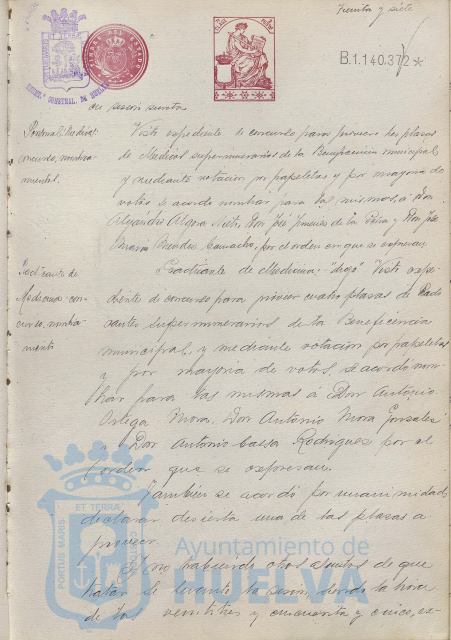 Treinta y siete
B.1.140.372*
ET TERRA
PORTUS MARIS
EXCMO. CONSTNAL. DE HUELVA
TIMBRE DEL ESTADO
en sesion
Personal Medico:
concurso, nombra-
miento.
Visto expediente de concurso para proveer tres plazas
de Medicos supernumerarios de la Beneficencia municipal
y mediante votacion por papeletas y por mayoria de
votos se acordo nombrar para las mismas, á Don
Alejandro Nieto, Don José Jimenez de la y Don José
Maria Mendez Camacho, por el orden en que se expresan.
Practicante de
Medicina: con-
curso, nombra-
miento
Practicante de Medicina: Visto expe-
diente de concurso para proveer cuatro plazas de Practi-
cantes Supernumerarios de la Beneficencia
municipal, y mediante votación por papeletas
y por mayoria de votos, se acordó nom-
brar para las mismas á Don Antonio
Ortega Mora, Don Antonio Mora Gonzalez
y Don Antonio Rodriguez por el
orden que se expresan.
También se acordó por unanimidad
declarar desierta una de las plazas a
proveer.
Y no habiendo otros asuntos de que
tratar se levantó la sesión, siendo la hora
de las veintitres y cincuenta y cinco, ex-
ET TERRA
PORTUS MARIS
CUSTODIA
Ayuntamiento de
HUELVA